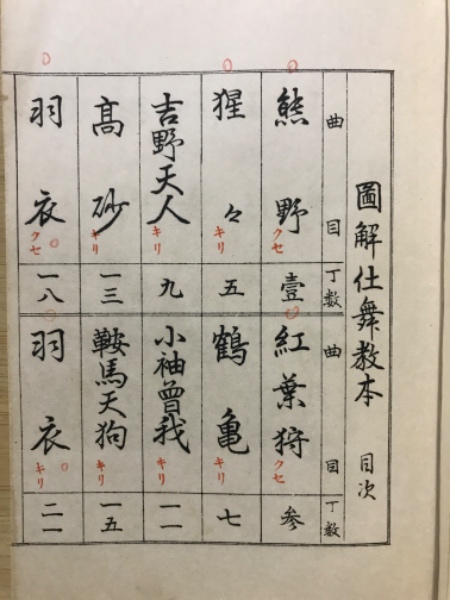 圖解仕舞教本 目次
曲目 丁数
熊野 クセ 壹
猩々 キリ 五
吉野天人 キリ 九
高砂 キリ 一三
羽衣 クセ 一八
曲目 丁数
紅葉狩 クセ 参
鶴亀 キリ 七
小袖曽我 キリ 一一
鞍馬天狗 キリ 一五
羽衣 キリ 二一